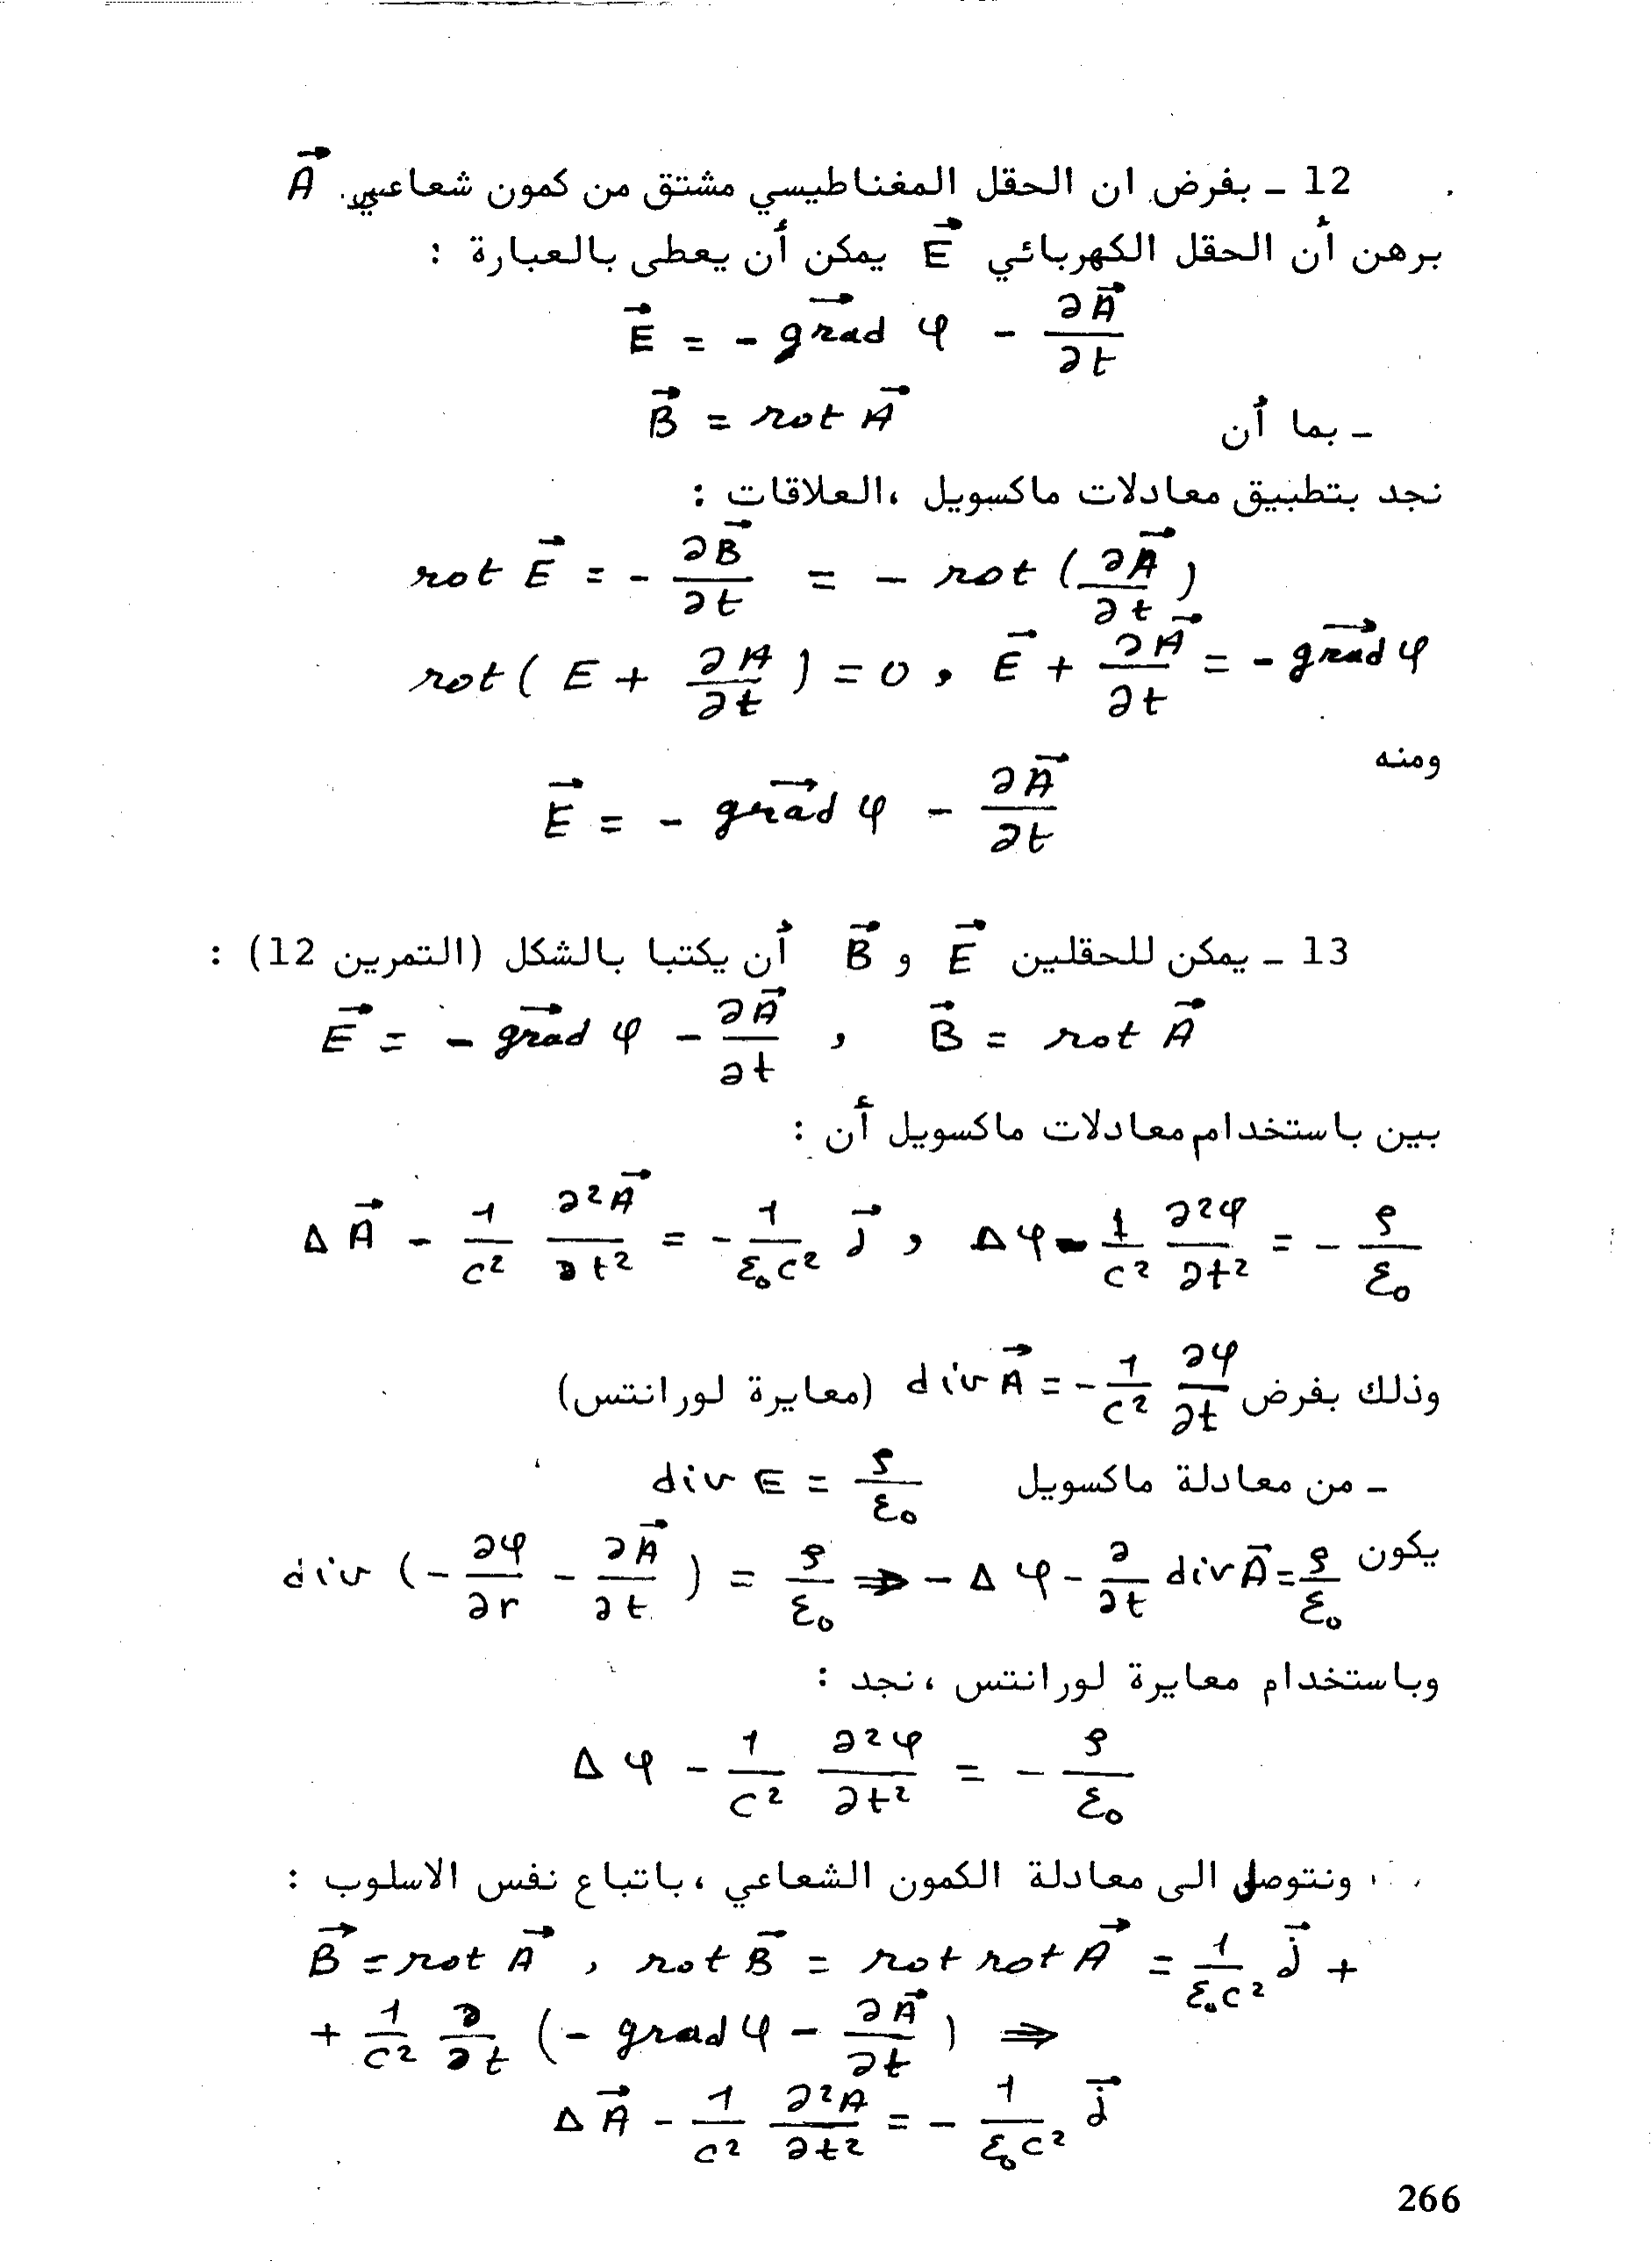 12 ـ بفرض ان الحقل المغناطيسي مشتق من كمون شعاعي. A⃗
برهن أن الحقل الكهربائي E⃗ يمكن أن يعطى بالعبارة :
E⃗ = - grad⃗ φ - ∂A⃗/∂t
ـ بما أن B⃗ = rot A⃗
نجد بتطبيق معادلات ماكسويل ،العلاقات :
rot E⃗ = - ∂B⃗/∂t = - rot (∂A⃗/∂t)
rot( E + ∂A/∂t ) = 0 , E⃗ + ∂A⃗/∂t = - grad⃗ φ
ومنه
E⃗ = - grad⃗ φ - ∂A⃗/∂t
13 ـ يمكن للحقلين E⃗ و B⃗ أن يكتبا بالشكل (التمرين 12) :
E⃗ = - grad⃗ φ - ∂A⃗/∂t , B⃗ = rot A⃗
بين باستخدام معادلات ماكسويل أن :
Δ A⃗ - 1/c² ∂²A⃗/∂t² = - 1/ε₀c² j⃗ , Δφ - 1/c² ∂²φ/∂t² = - ρ/ε₀
وذلك بفرض div A⃗ = - 1/c² ∂φ/∂t (معايرة لورانتس)
ـ من معادلة ماكسويل div E = ρ/ε₀
يكون div (- ∂φ/∂r - ∂A⃗/∂t ) = ρ/ε₀ ⇒ - Δ φ - ∂/∂t div A⃗ = ρ/ε₀
وباستخدام معايرة لورانتس ،نجد :
Δ φ - 1/c² ∂²φ/∂t² = - ρ/ε₀
ونتوصل الى معادلة الكمون الشعاعي ،باتباع نفس الاسلوب :
B⃗ = rot A⃗ , rot B⃗ = rot rot A⃗ = 1/ε₀c² j⃗ +
+ 1/c² ∂/∂t (- grad φ - ∂A⃗/∂t ) ⇒
Δ A⃗ - 1/c² ∂²A/∂t² = - 1/ε₀c² j⃗
266